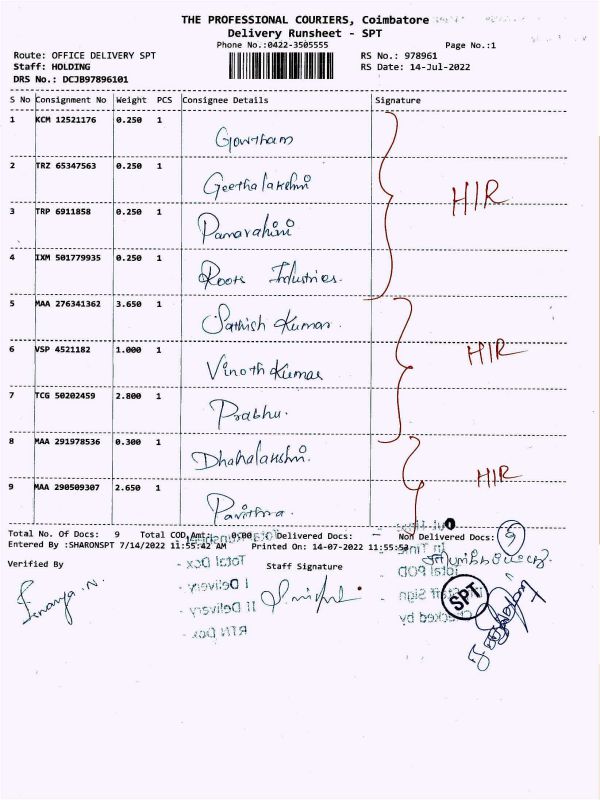 THE PROFESSIONAL COURIERS, Coimbatore
Delivery Runsheet - SPT
Phone No.:0422-3505555 Page No.:1
Route: OFFICE DELIVERY SPT RS No.: 978961
Staff: HOLDING RS Date: 14-Jul-2022
DRS No.: DCJB97896101
S No Consignment No Weight PCS Consignee Details Signature
1 KCM 12521176 0.250 1 Gowtham
2 TRZ 65347563 0.250 1 Geethalakshmi
HIR
3 TRP 6911858 0.250 1
4 IXM 501779935 0.250 1 Roots Industries.
5 MAA 276341362 3.650 1 Sathish Kumar.
6 VSP 4521182 1.000 1 Vinoth Kumar HIR
7 TCG 50202459 2.800 1 Prabhu.
8 MAA 291978536 0.300 1 Dhanalakshmi. HIR
9 MAA 290509307 2.650 1 Pavithra.
Total No. Of Docs: 9 Total COD Amt: 0.00 Delivered Docs: — Non Delivered Docs: 9
Entered By :SHARONSPT 7/14/2022 11:55:42 AM Printed On: 14-07-2022 11:55:52
Verified By Staff Signature
SPT
Total Dox -
I Delivery -
II Delivery -
RTN Dox -
Total POD -
Staff Sign
Checked by